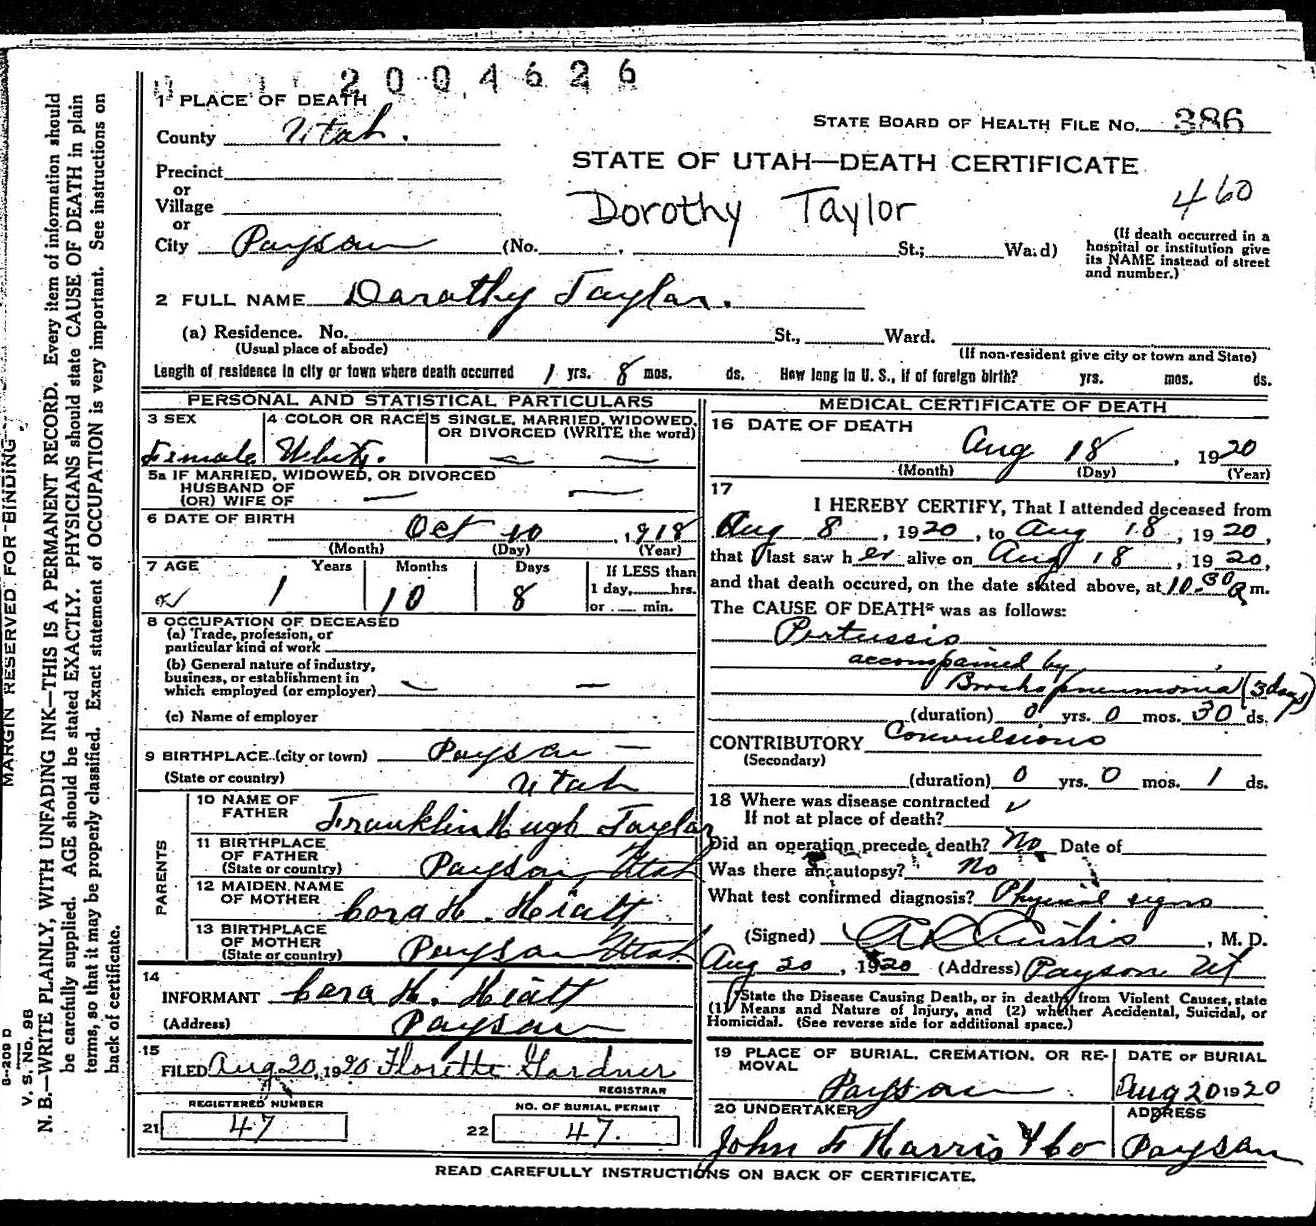 2004626
1 PLACE OF DEATH
STATE BOARD OF HEALTH FILE NO. 386
County Utah.
STATE OF UTAH—DEATH CERTIFICATE
Precinct
or
Village
Dorothy Taylor
460
or
City Payson (No. , St.; Ward)
(If death occurred in a
hospital or institution give
its NAME instead of street
and number.)
2 FULL NAME Dorothy Taylor.
(a) Residence. No. St., Ward.
(Usual place of abode) (If non-resident give city or town and State)
Length of residence in city or town where death occurred 1 yrs. 8 mos. ds. How long in U. S., if of foreign birth? yrs. mos. ds.
PERSONAL AND STATISTICAL PARTICULARS
3 SEX 4 COLOR OR RACE 5 SINGLE, MARRIED, WIDOWED,
OR DIVORCED (WRITE the word)
Female White. — —
5a IF MARRIED, WIDOWED, OR DIVORCED
HUSBAND OF
(OR) WIFE OF — —
6 DATE OF BIRTH
Oct 10, 1918
(Month) (Day) (Year)
7 AGE Years Months Days If LESS than
1 day, hrs.
or min.
1 10 8
8 OCCUPATION OF DECEASED
(a) Trade, profession, or
particular kind of work
(b) General nature of industry,
business, or establishment in
which employed (or employer) — —
(c) Name of employer
9 BIRTHPLACE (city or town) Payson —
(State or country) Utah
PARENTS
10 NAME OF
FATHER Franklin Hugh Taylor
11 BIRTHPLACE
OF FATHER
(State or country) Payson, Utah
12 MAIDEN NAME
OF MOTHER Cora H. Hiatt
13 BIRTHPLACE
OF MOTHER
(State or country) Payson Utah
14
INFORMANT Cora H. Hiatt
(Address) Payson
15
FILED Aug 20, 1920 Florette Gardner
REGISTRAR
REGISTERED NUMBER NO. OF BURIAL PERMIT
21 47 22 47.
MEDICAL CERTIFICATE OF DEATH
16 DATE OF DEATH
Aug 18, 1920
(Month) (Day) (Year)
17
I HEREBY CERTIFY, That I attended deceased from
Aug 8, 1920, to Aug 18, 1920,
that I last saw her alive on Aug 18, 1920,
and that death occured, on the date stated above, at 10.30 a m.
The CAUSE OF DEATH* was as follows:
Pertussis
accompained by
Broncho pneumonia (3 days)
(duration) 0 yrs. 0 mos. 30 ds.
CONTRIBUTORY Convulsions
(Secondary)
(duration) 0 yrs. 0 mos. 1 ds.
18 Where was disease contracted
If not at place of death?
Did an operation precede death? No Date of
Was there an autopsy? No
What test confirmed diagnosis? Physical signs
(Signed) , M. D.
Aug 20, 1920 (Address) Payson Ut
*State the Disease Causing Death, or in deaths from Violent Causes, state
(1) Means and Nature of Injury, and (2) whether Accidental, Suicidal, or
Homicidal. (See reverse side for additional space.)
19 PLACE OF BURIAL, CREMATION, OR RE-
MOVAL DATE OF BURIAL
Payson Aug 20 1920
20 UNDERTAKER ADDRESS
John F Harris & Co Payson
READ CAREFULLY INSTRUCTIONS ON BACK OF CERTIFICATE.
MARGIN RESERVED FOR BINDING
N. B.—WRITE PLAINLY, WITH UNFADING INK—THIS IS A PERMANENT RECORD. Every item of information should
be carefully supplied. AGE should be stated EXACTLY. PHYSICIANS should state CAUSE OF DEATH in plain
terms, so that it may be properly classified. Exact statement of OCCUPATION is very important. See instructions on
back of certificate.
V. S. No. 98